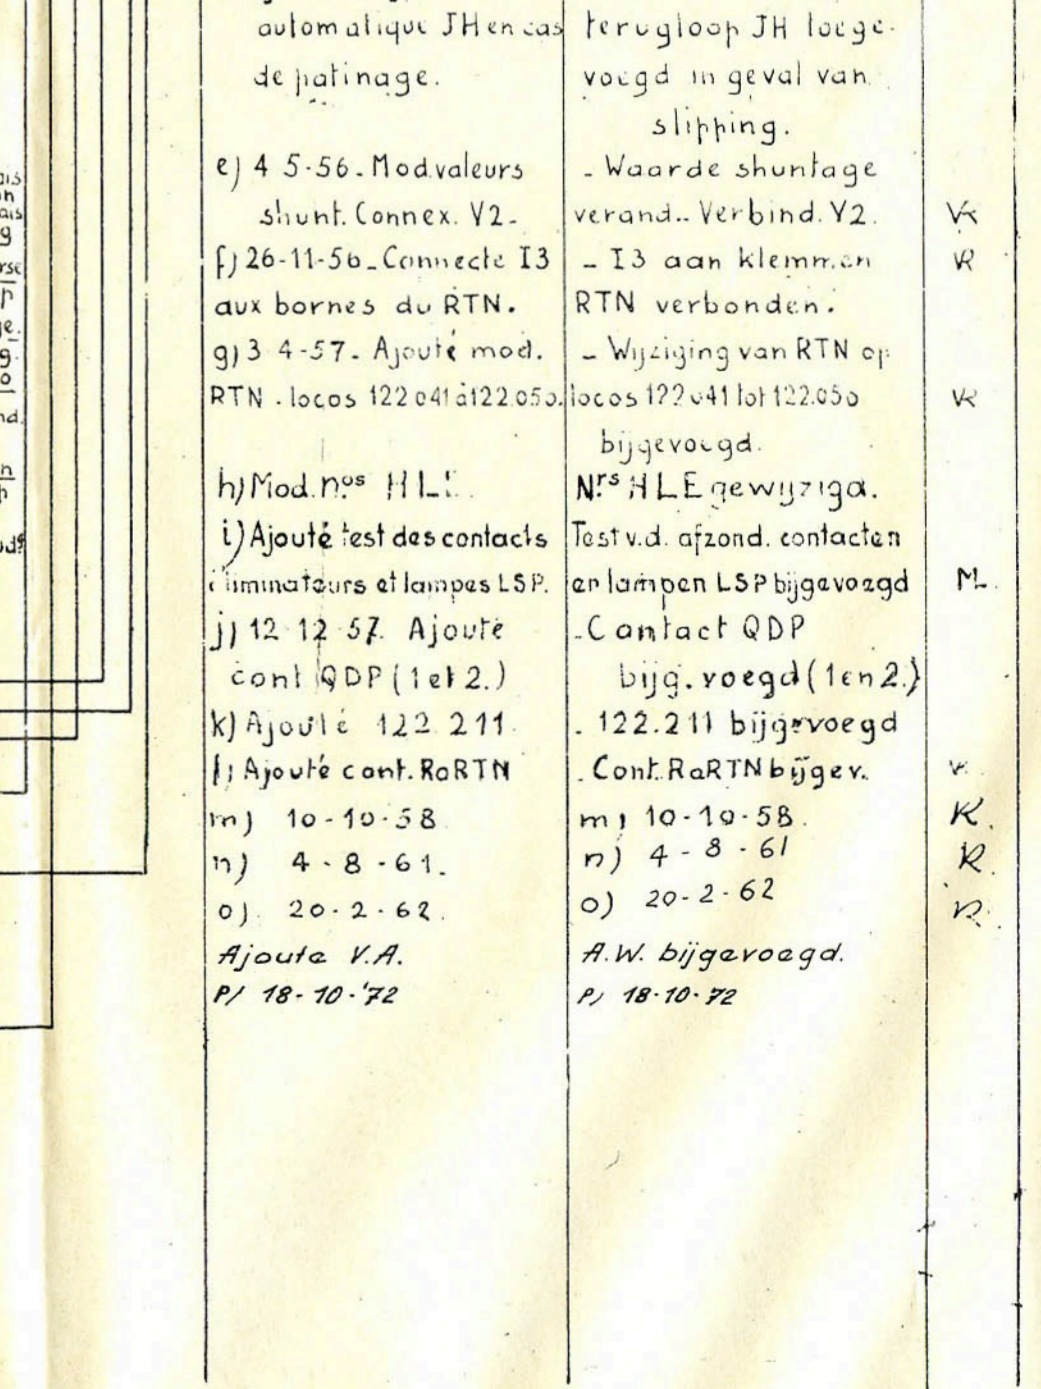 automatique JH en cas
de patinage.
e) 4 5-56. Mod. valeurs
shunt. Connex. V2.
f) 26-11-56. Connecté I3
aux bornes du RTN.
g) 3 4-57. Ajouté mod.
RTN. locos 122 041 à 122.050.
h) Mod. nos HLE.
i) Ajouté test des contacts
éliminateurs et lampes LSP.
j) 12 12 57. Ajouté
cont QDP (1 et 2.)
k) Ajouté 122 211.
l) Ajouté cont. RaRTN
m) 10-10-58
n) 4-8-61.
o) 20-2-62.
Ajoute V.A.
P/ 18-10-'72
terugloop JH toege-
voegd in geval van
slipping.
- Waarde shuntage
verand.. Verbind. V2.
- I3 aan klemmen
RTN verbonden.
- Wijziging van RTN op
locos 122 041 tot 122.050
bijgevoegd.
Nrs HLE gewijzigd.
Test v.d. afzond. contacten
en lampen LSP bijgevoegd
- Contact QDP
bijg. voegd (1 en 2.)
. 122.211 bijgevoegd
. Cont. RaRTN bijgev.
m) 10-10-58.
n) 4-8-61
o) 20-2-62
A.W. bijgevoegd.
P) 18-10-72